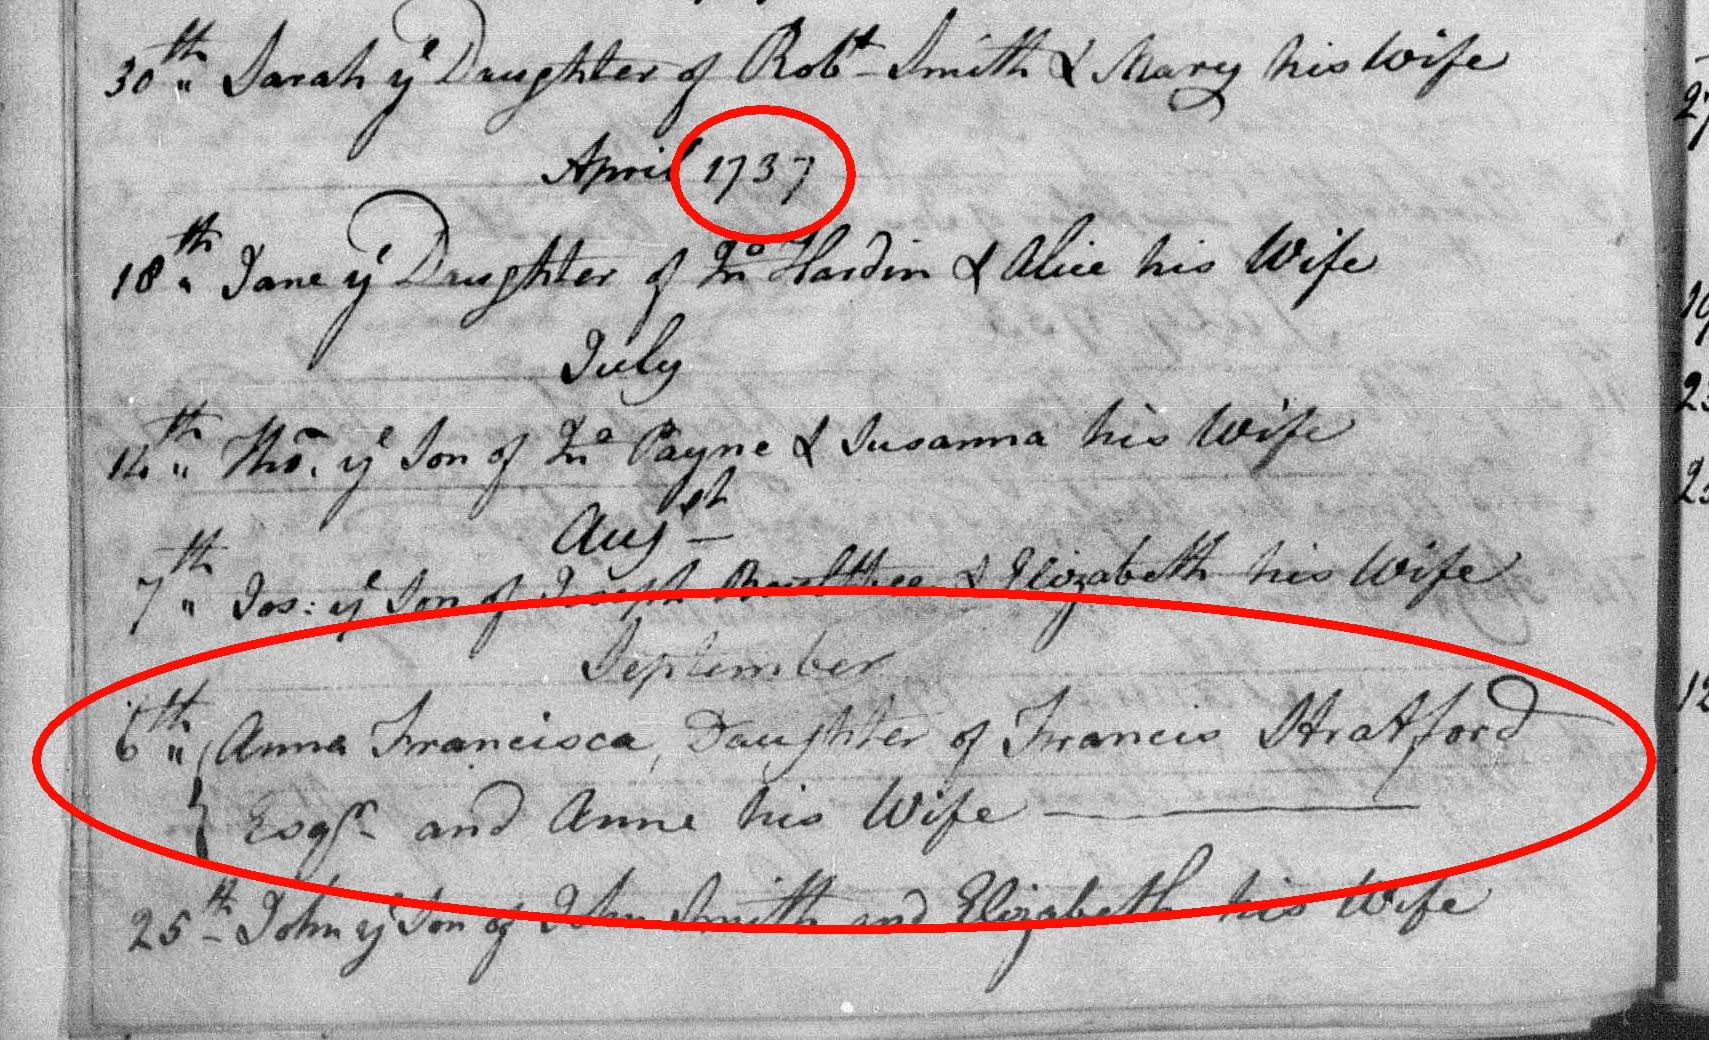 30th„ Sarah ye Daughter of Robt Smith & Mary his Wife
April 1737
18th„ Jane ye Daughter of Jno Hardin & Alice his Wife
July
14th„ Tho. ye Son of Jno Payne & Susanna his Wife
Augst
7th„ Jos: ye Son of Joseph & Elizabeth his Wife
September
6th„ Anna Francisca, Daughter of Francis Stratford
Esqr and Anne his Wife
25th John ye Son of John Smith and Elizabeth his Wife
27
19
23
12